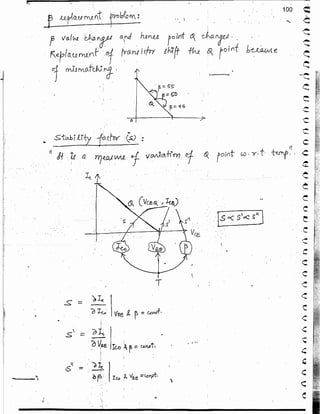 100
β replacement problem:
β value changes and hence point Q changes.
Replacement of transistor shift the Q point because
of mismatching.
β = 55
β = 50
Q
β = 45
Stability factor (S) :
"It is a measure of variation of Q point w.r.t temp."
Ic
Q (VCEQ, ICQ)
S
S'
S"
VCE
S < S' < S"
Ico
VBE
β
T
S = ∂Ic / ∂Ico | VBE & β = const.
S' = ∂Ic / ∂VBE | Ico & β = const.
S" = ∂Ic / ∂β | Ico & VBE = const.